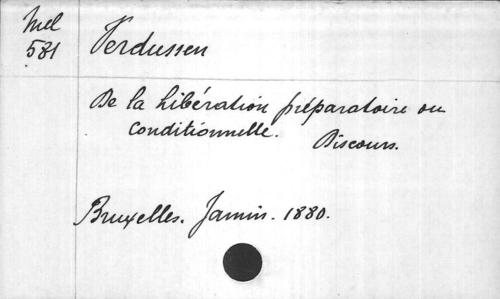 Mel
581
Verdussen
De la libération préparatoire ou
conditionnelle. Discours.
Bruxelles. Jamin. 1880.